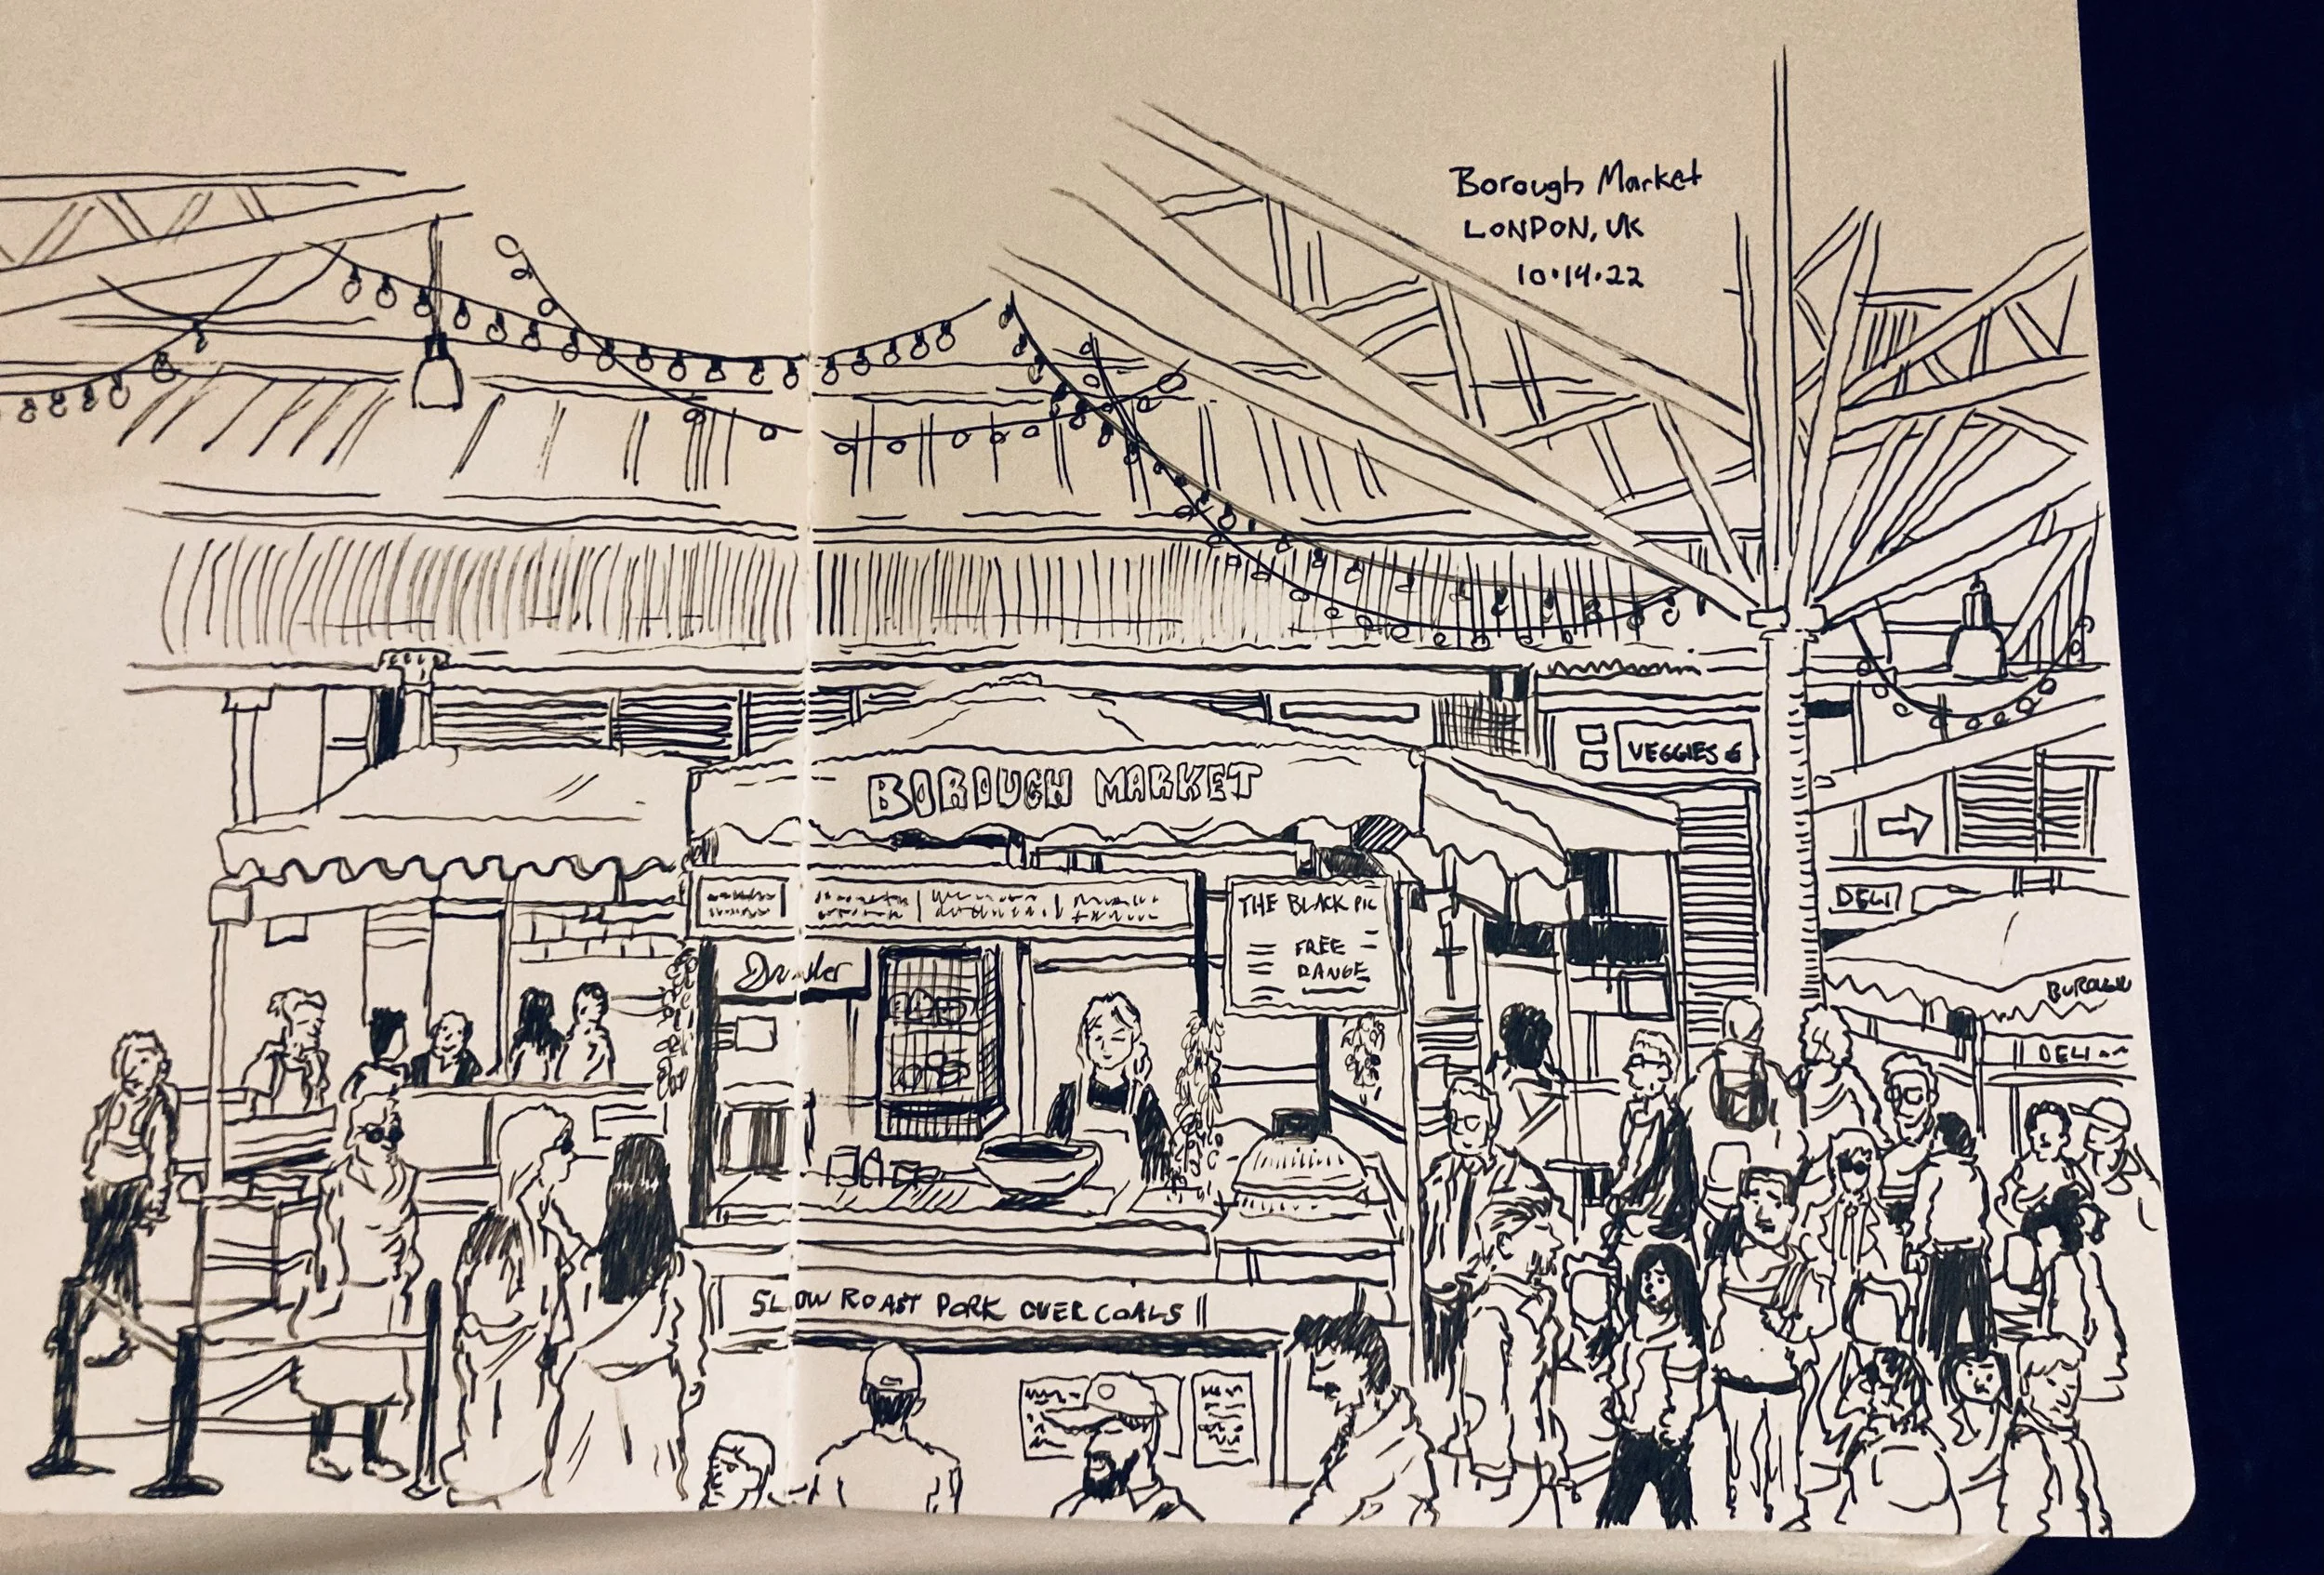 Borough Market
LONDON, UK
10.14.22
VEGGIES
BOROUGH MARKET
DELI
THE BLACK PIG
FREE
RANGE
DELI
SLOW ROAST PORK OVER COALS